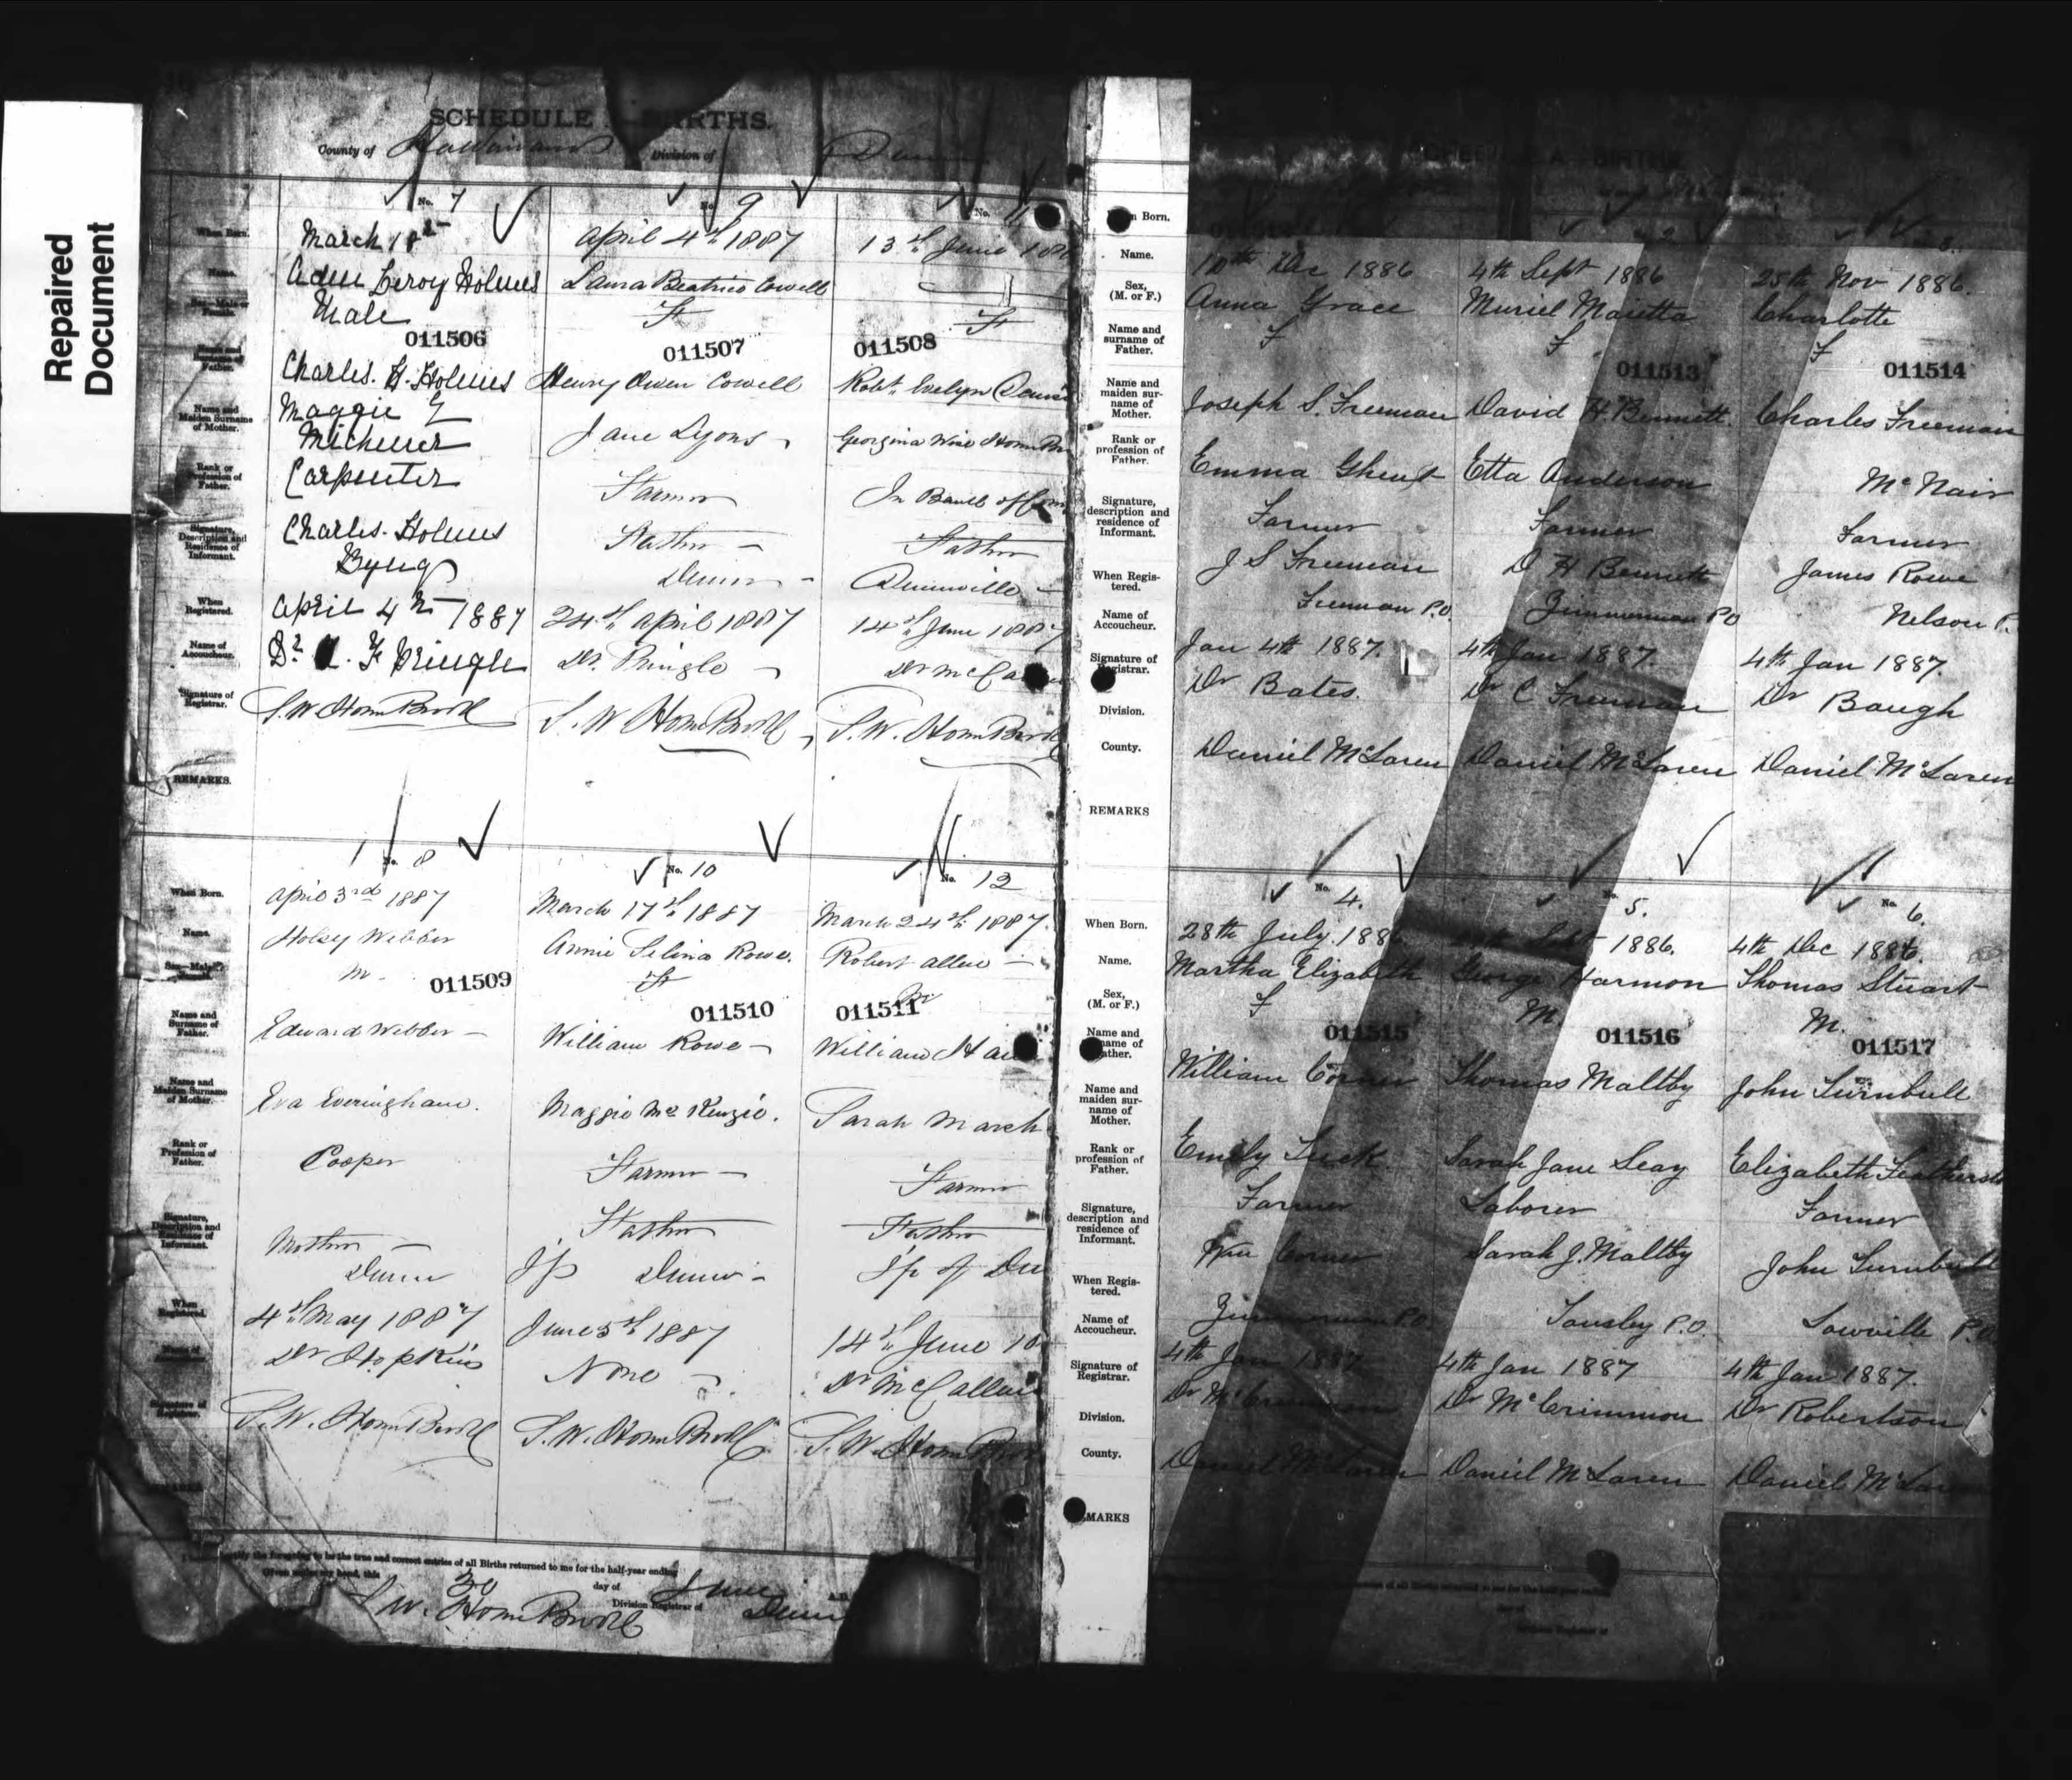 Repaired
Document
SCHEDULE BIRTHS.
County of Haldimand Division of Dunn
No. 7
When Born. March 18
Name. Aden Leroy Holmes
Sex—Male or Female. Male
011506
Name and Surname of Father. Charles. H. Holmes
Name and Maiden Surname of Mother. Maggie
Michener
Rank or Profession of Father. Carpenter
Signature, Description and Residence of Informant. Charles. Holmes
Byng
When Registered. April 4th 1887
Name of Accoucheur. Dr. F Pringle
Signature of Registrar. S. W. HorniBrook
REMARKS.
No. 9
April 4th 1887
Laura Beatrice Cowell
F
011507
Henry Owen Cowell
Jane Lyons
Farmer
Father
Dunn
24th April 1887
Dr. Pringle
S. W HorniBrook
No. 11
13th June
F
011508
Robt Evelyn
Georgina
In Bank of
Father
Dunnville
14th June 1887
Dr
S. W. HorniBrook
No. 8
When Born. April 3rd 1887
Name. Holsey Webber
M
011509
Name and Surname of Father. Edward Webber
Name and Maiden Surname of Mother. Eva Everingham.
Rank or Profession of Father. Cooper
Signature, Description and Residence of Informant. Mother
Dunn
When Registered. 4th May 1887
Dr Hopkins
S. W. HorniBrook
No. 10
March 17th 1887
Annie Selina Rowe.
F
011510
William Rowe
Maggie McKenzie.
Farmer
Father
Tp Dunn
June 5th 1887
None
S. W. HorniBrook
No. 12
March 24th 1887.
Robert Allen
M
011511
William
Sarah March
Farmer
Father
Tp of
14th June
Dr McCallum
S. W. HorniBrook
certify the foregoing to be the true and correct entries of all Births returned to me for the half-year ending
Given under my hand, this 30 day of June A.D.
S. W. HorniBrook Division Registrar of Dunn
SCHEDULE A. BIRTHS.
Born.
Name.
Sex, (M. or F.)
Name and surname of Father.
Name and maiden surname of Mother.
Rank or profession of Father.
Signature, description and residence of Informant.
When Registered.
Name of Accoucheur.
Signature of Registrar.
Division.
County.
REMARKS
10th Dec 1886
Anna Grace
F
Joseph S. Freeman
Emma Ghent
Farmer
J S Freeman
Freeman P.O.
Jan 4th 1887.
Dr Bates.
Daniel McLaren
2
4th Sept 1886
Muriel Maretta
F
011513
David H. Bennett.
Etta Anderson
Farmer
D H Bennett
Zimmerman PO
4th Jan 1887.
Dr C Freeman
Daniel McLaren
3.
25th Nov 1886.
Charlotte
F
011514
Charles Freeman
McNair
Farmer
James Rowe
Nelson P.
4th Jan 1887.
Dr Baugh
Daniel McLaren
When Born.
Name.
Sex, (M. or F.)
Name and
Name and maiden surname of Mother.
Rank or profession of Father.
Signature, description and residence of Informant.
When Registered.
Name of Accoucheur.
Signature of Registrar.
Division.
County.
No. 4.
28th July. 1886
Martha Elizabeth
F
011515
William Corner
Emily Tuck
Farmer
Wm Corner
Zimmerman P.O.
4th Jan 1887
Dr McCrimmon
Daniel McLaren
No. 5.
Sept 1886.
George Harmon
M.
011516
Thomas Maltby
Sarah Jane Seay
Laborer
Sarah J. Maltby
Tansley P.O.
4th Jan 1887
Dr McCrimmon
Daniel McLaren
No. 6.
4th Dec 1886.
Thomas Stuart
M.
011517
John Turnbull
Elizabeth
Farmer
John Turnbull
Lowville P.O.
4th Jan 1887.
Dr Robertson
Daniel